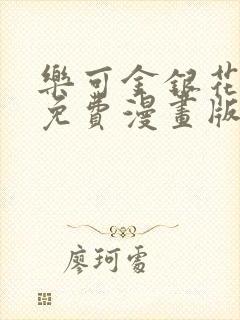 樂可金銀花
免費漫畫版
廖珂雪